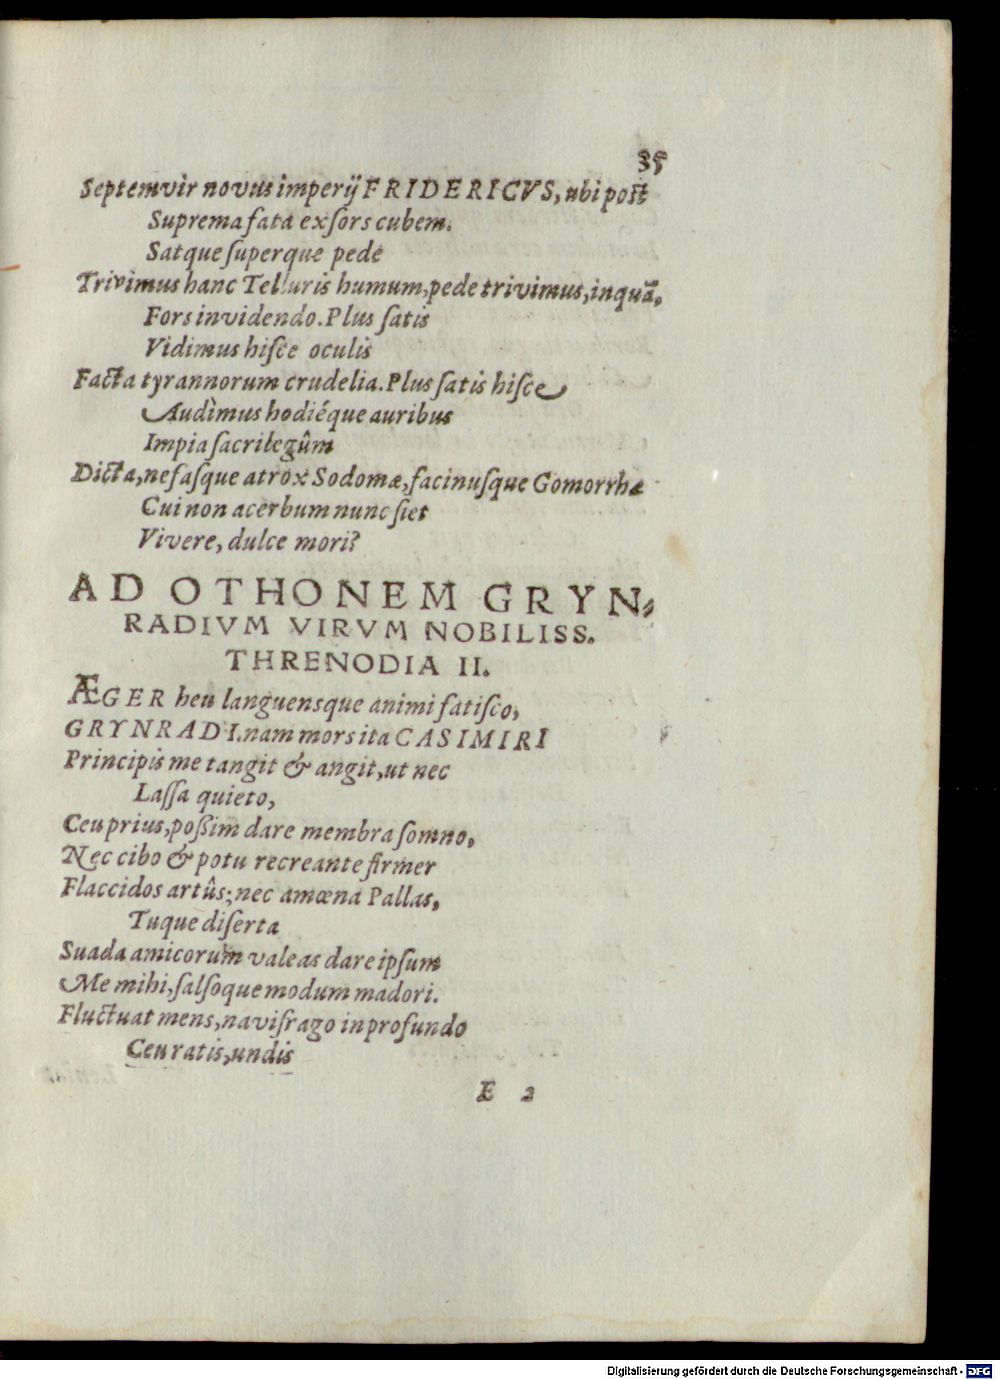 35
Septemvir novus imperij FRIDERICVS, ubi post
Suprema fata exſors cubem.
Satque ſuperque pede
Trivimus hanc Telluris humum, pede trivimus, inquã,
Fors invidendo. Plus ſatis
Vidimus hiſce oculis
Facta tyrannorum crudelia. Plus ſatis hiſce
Audìmus hodiéque auribus
Impia ſacrilegûm
Dicta, nefaſque atrox Sodomæ, facinuſque Gomorrhæ
Cui non acerbum nunc ſiet
Vivere, dulce mori?
AD OTHONEM GRYN-
RADIVM VIRVM NOBILISS.
THRENODIA II.
ÆGER heu languensque animi fatiſco,
GRYNRADI. nam mors ita CASIMIRI
Principis me tangit & angit, ut nec
Laſſa quieto,
Ceu prius, poßim dare membra ſomno,
Nec cibo & potu recreante firmer
Flaccidos artûs; nec amœna Pallas,
Tuque diſerta
Suada amicorum valeas dare ipſum
Me mihi, ſalſoque modum madori.
Fluctuat mens, navifrago in profundo
Ceu ratis, undis
E 2
Digitalisierung gefördert durch die Deutsche Forschungsgemeinschaft - DFG